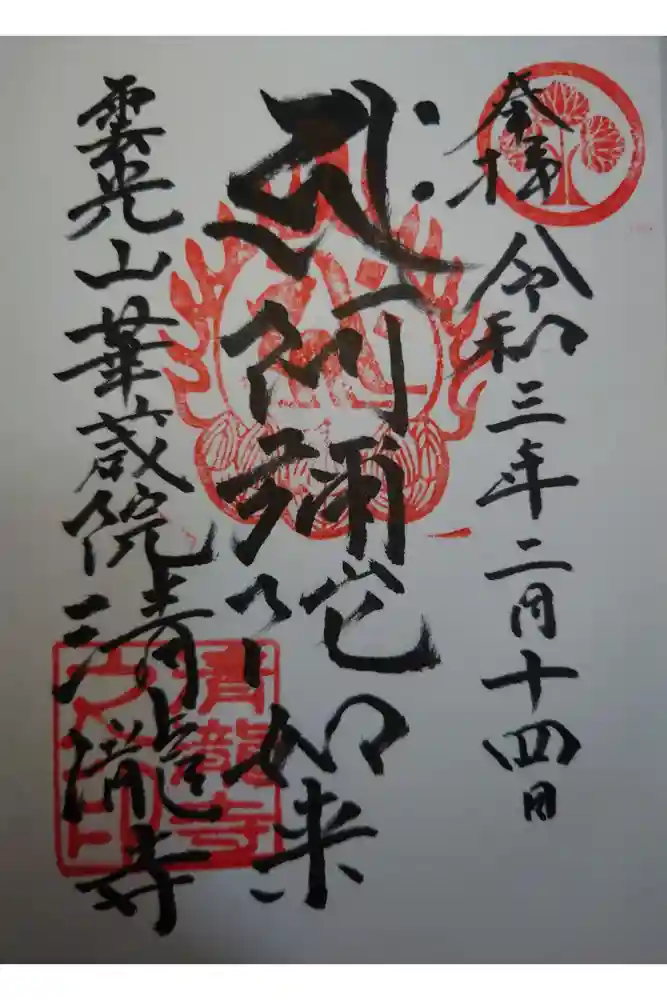 奉拝
令和三年二月十四日
阿彌陀如来
雲光山華蔵院清瀧寺
清龍寺